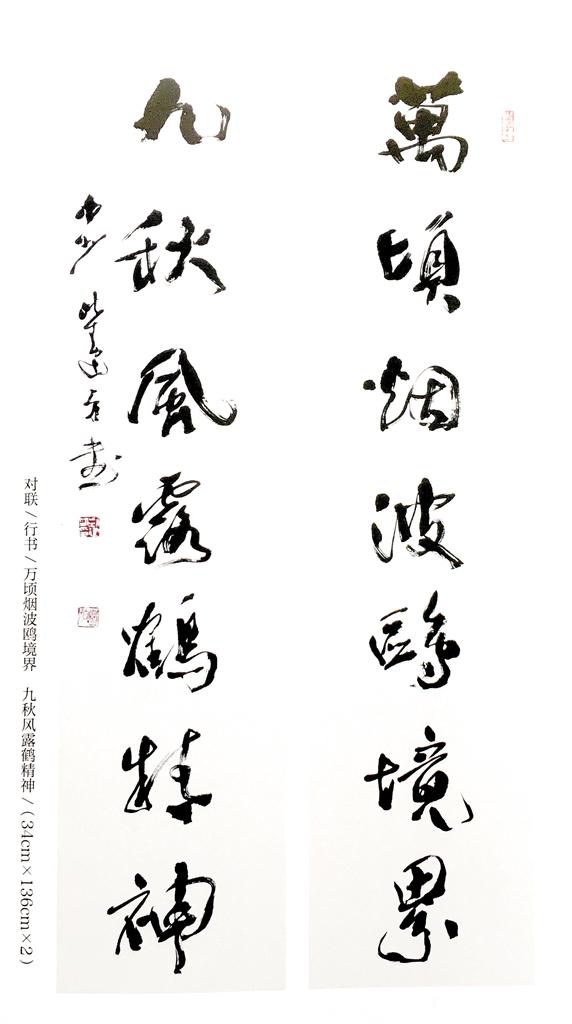 萬頃烟波鷗境界
九秋風露鶴精神
对联/行书/万顷烟波鸥境界 九秋风露鹤精神/(34cm×136cm×2)